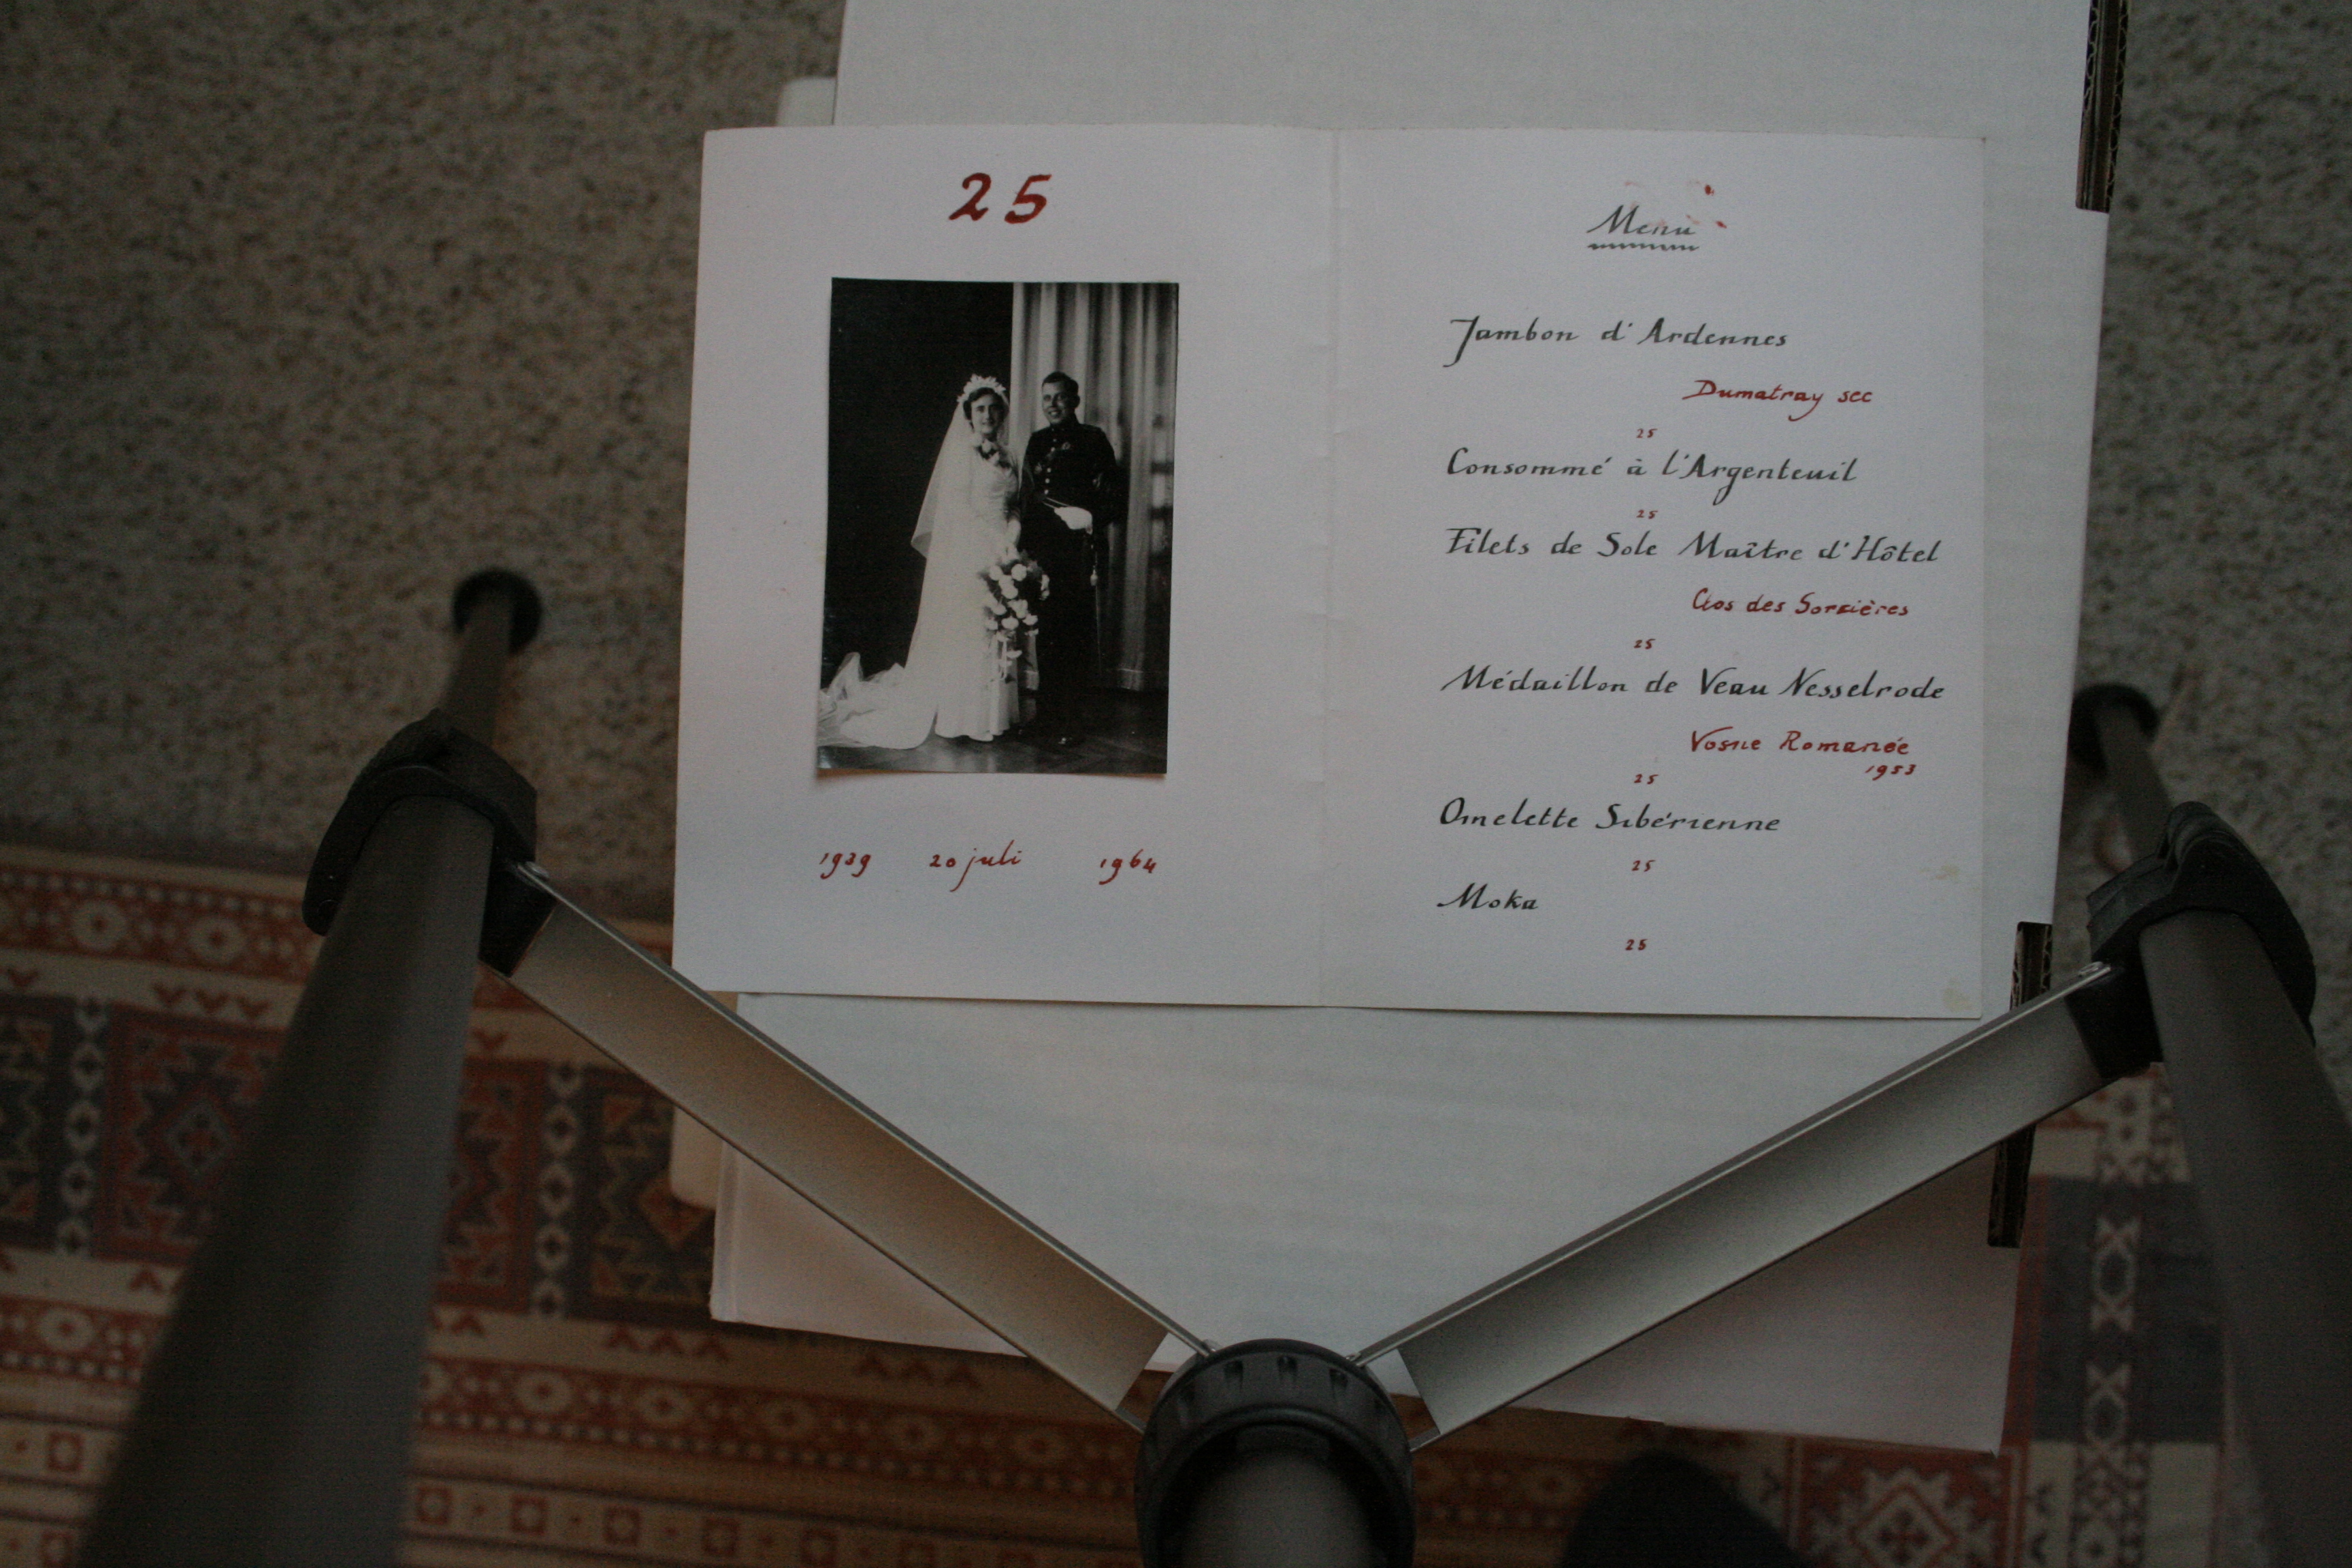 25
1939 20 juli 1964
Menu
Jambon d'Ardennes
Dumatray sec
25
Consommé à l'Argenteuil
25
Filets de Sole Maître d'Hôtel
Clos des Sorcières
25
Médaillon de Veau Nesselrode
Vosne Romanée
1953
25
Omelette Sibérienne
25
Moka
25